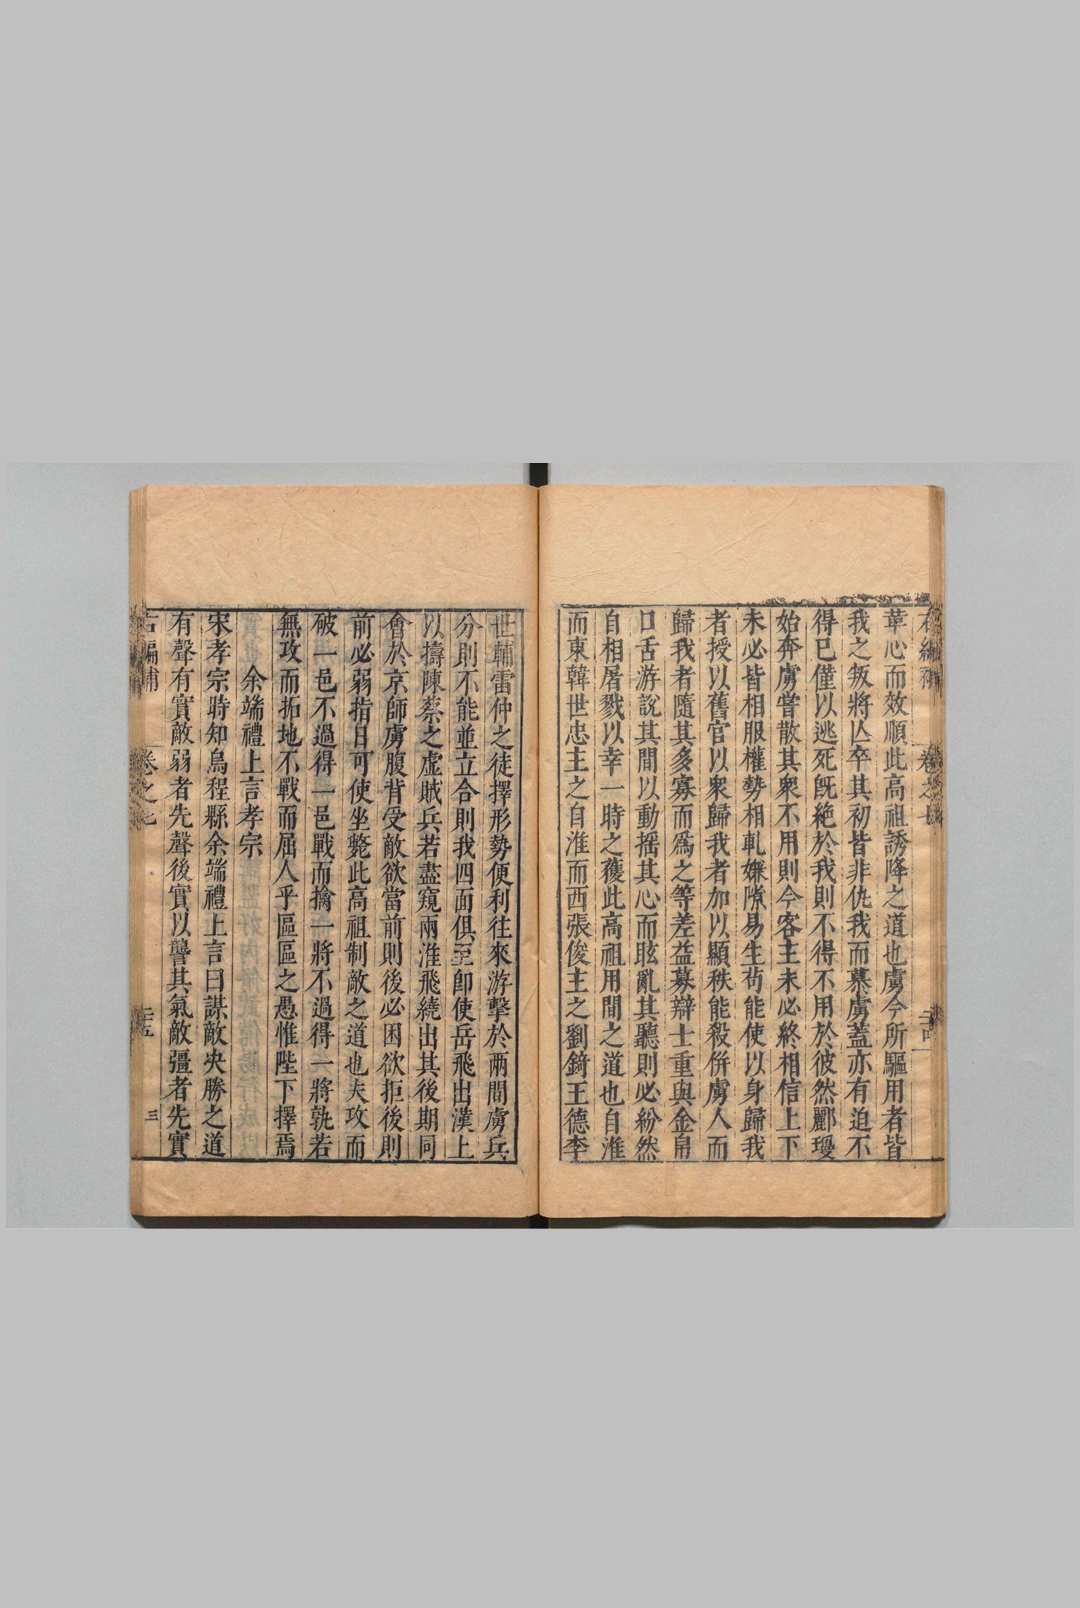 革心而效順此高祖誘降之道也虜今所驅用者皆
我之叛將亡卒其初皆非仇我而慕虜蓋亦有迫不
得已僅以逃死既絕於我則不得不用於彼然酈瓊
始奔虜嘗散其衆不用則今客主未必終相信上下
未必皆相服權勢相軋嫌隙易生苟能使以身歸我
者授以舊官以衆歸我者加以顯秩能殺併虜人而
歸我者隨其多寡而爲之等差益募辯士重與金帛
口舌游說其間以動搖其心而眩亂其聽則必紛然
自相屠戮以幸一時之獲此高祖用間之道也自淮
而東韓世忠主之自淮而西張俊主之劉錡王德李
世輔雷仲之徒擇形勢便利往來游擊於兩間虜兵
分則不能並立合則我四面俱至即使岳飛出漢上
以擣陳蔡之虛賊兵若盡窺兩淮飛繞出其後期同
會於京師虜腹背受敵欲當前則後必困欲拒後則
前必弱指日可使坐斃此高祖制敵之道也夫攻而
破一邑不過得一邑戰而擒一將不過得一將孰若
無攻而拓地不戰而屈人乎區區之愚惟陛下擇焉
余端禮上言孝宗
宋孝宗時知烏程縣余端禮上言曰謀敵決勝之道
有聲有實敵弱者先聲後實以讋其氣敵彊者先實
右編補 卷之七 三五 三